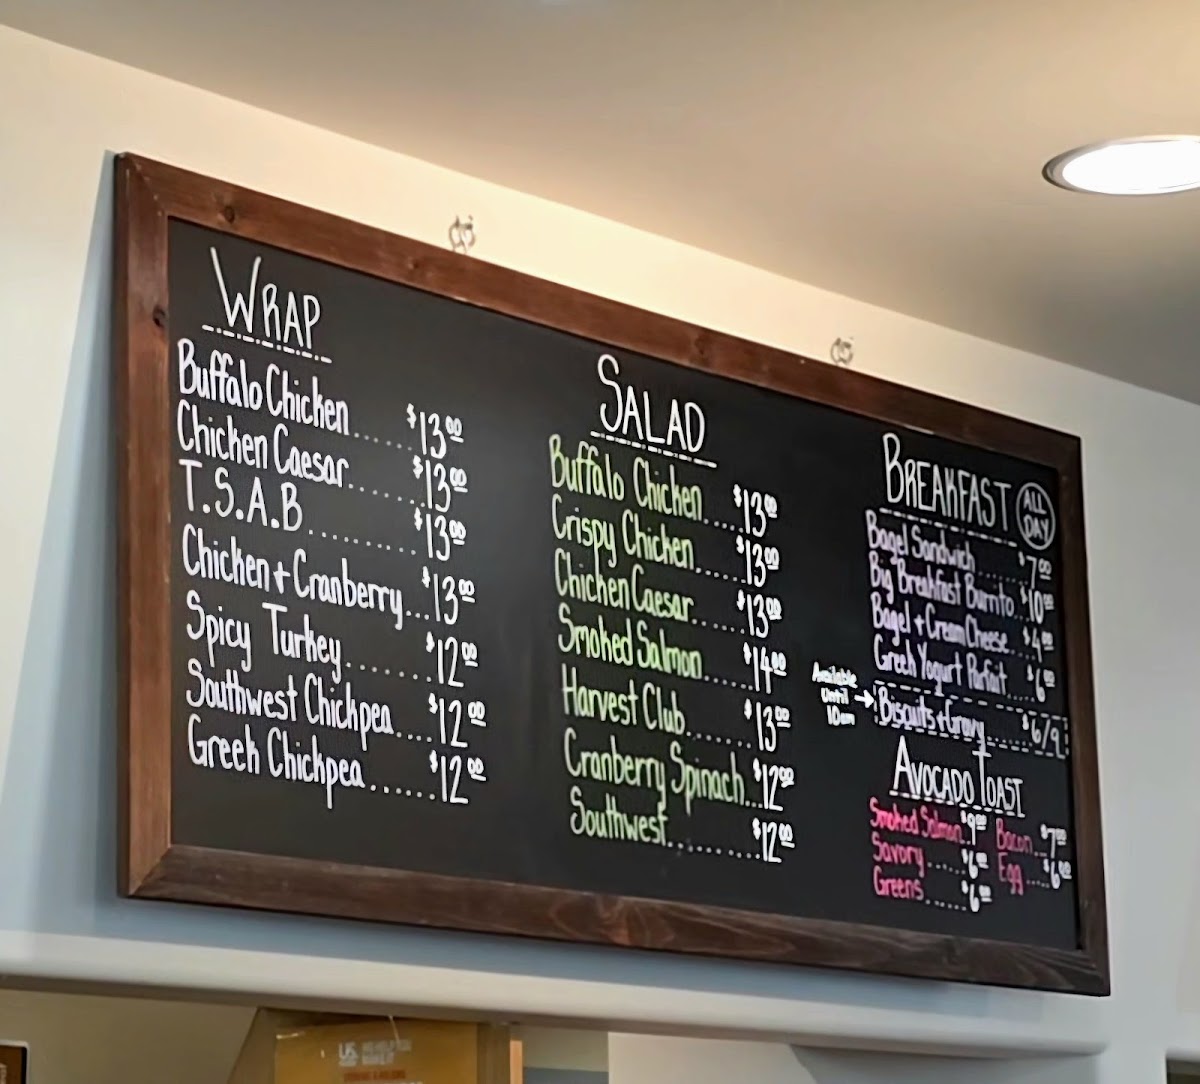 WRAP
Buffalo Chicken......$13.00
Chicken Caesar.......$13.00
T.S.A.B..........$13.00
Chicken + Cranberry...$13.00
Spicy Turkey.......$12.00
Southwest Chickpea....$12.00
Greek Chickpea......$12.00
SALAD
Buffalo Chicken.....$13.00
Crispy Chicken......$13.00
Chicken Caesar......$13.00
Smoked Salmon.....$14.00
Harvest Club.......$13.00
Cranberry Spinach...$12.00
Southwest..........$12.00
BREAKFAST ALL DAY
Bagel Sandwich......$7.00
Big Breakfast Burrito..$10.00
Bagel + Cream Cheese...$4.00
Greek Yogurt Parfait....$6.00
Available
Until
10am
Biscuits + Gravy....$6/9
AVOCADO TOAST
Smoked Salmon..$9.00 Bacon...$7.00
Savory.....$6.00 Egg....$6.00
Greens.....$6.00